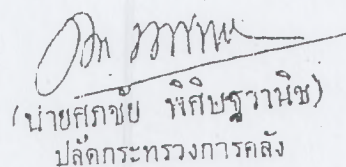 (นายศุภชัย พิศิษฐวานิช)
ปลัดกระทรวงการคลัง